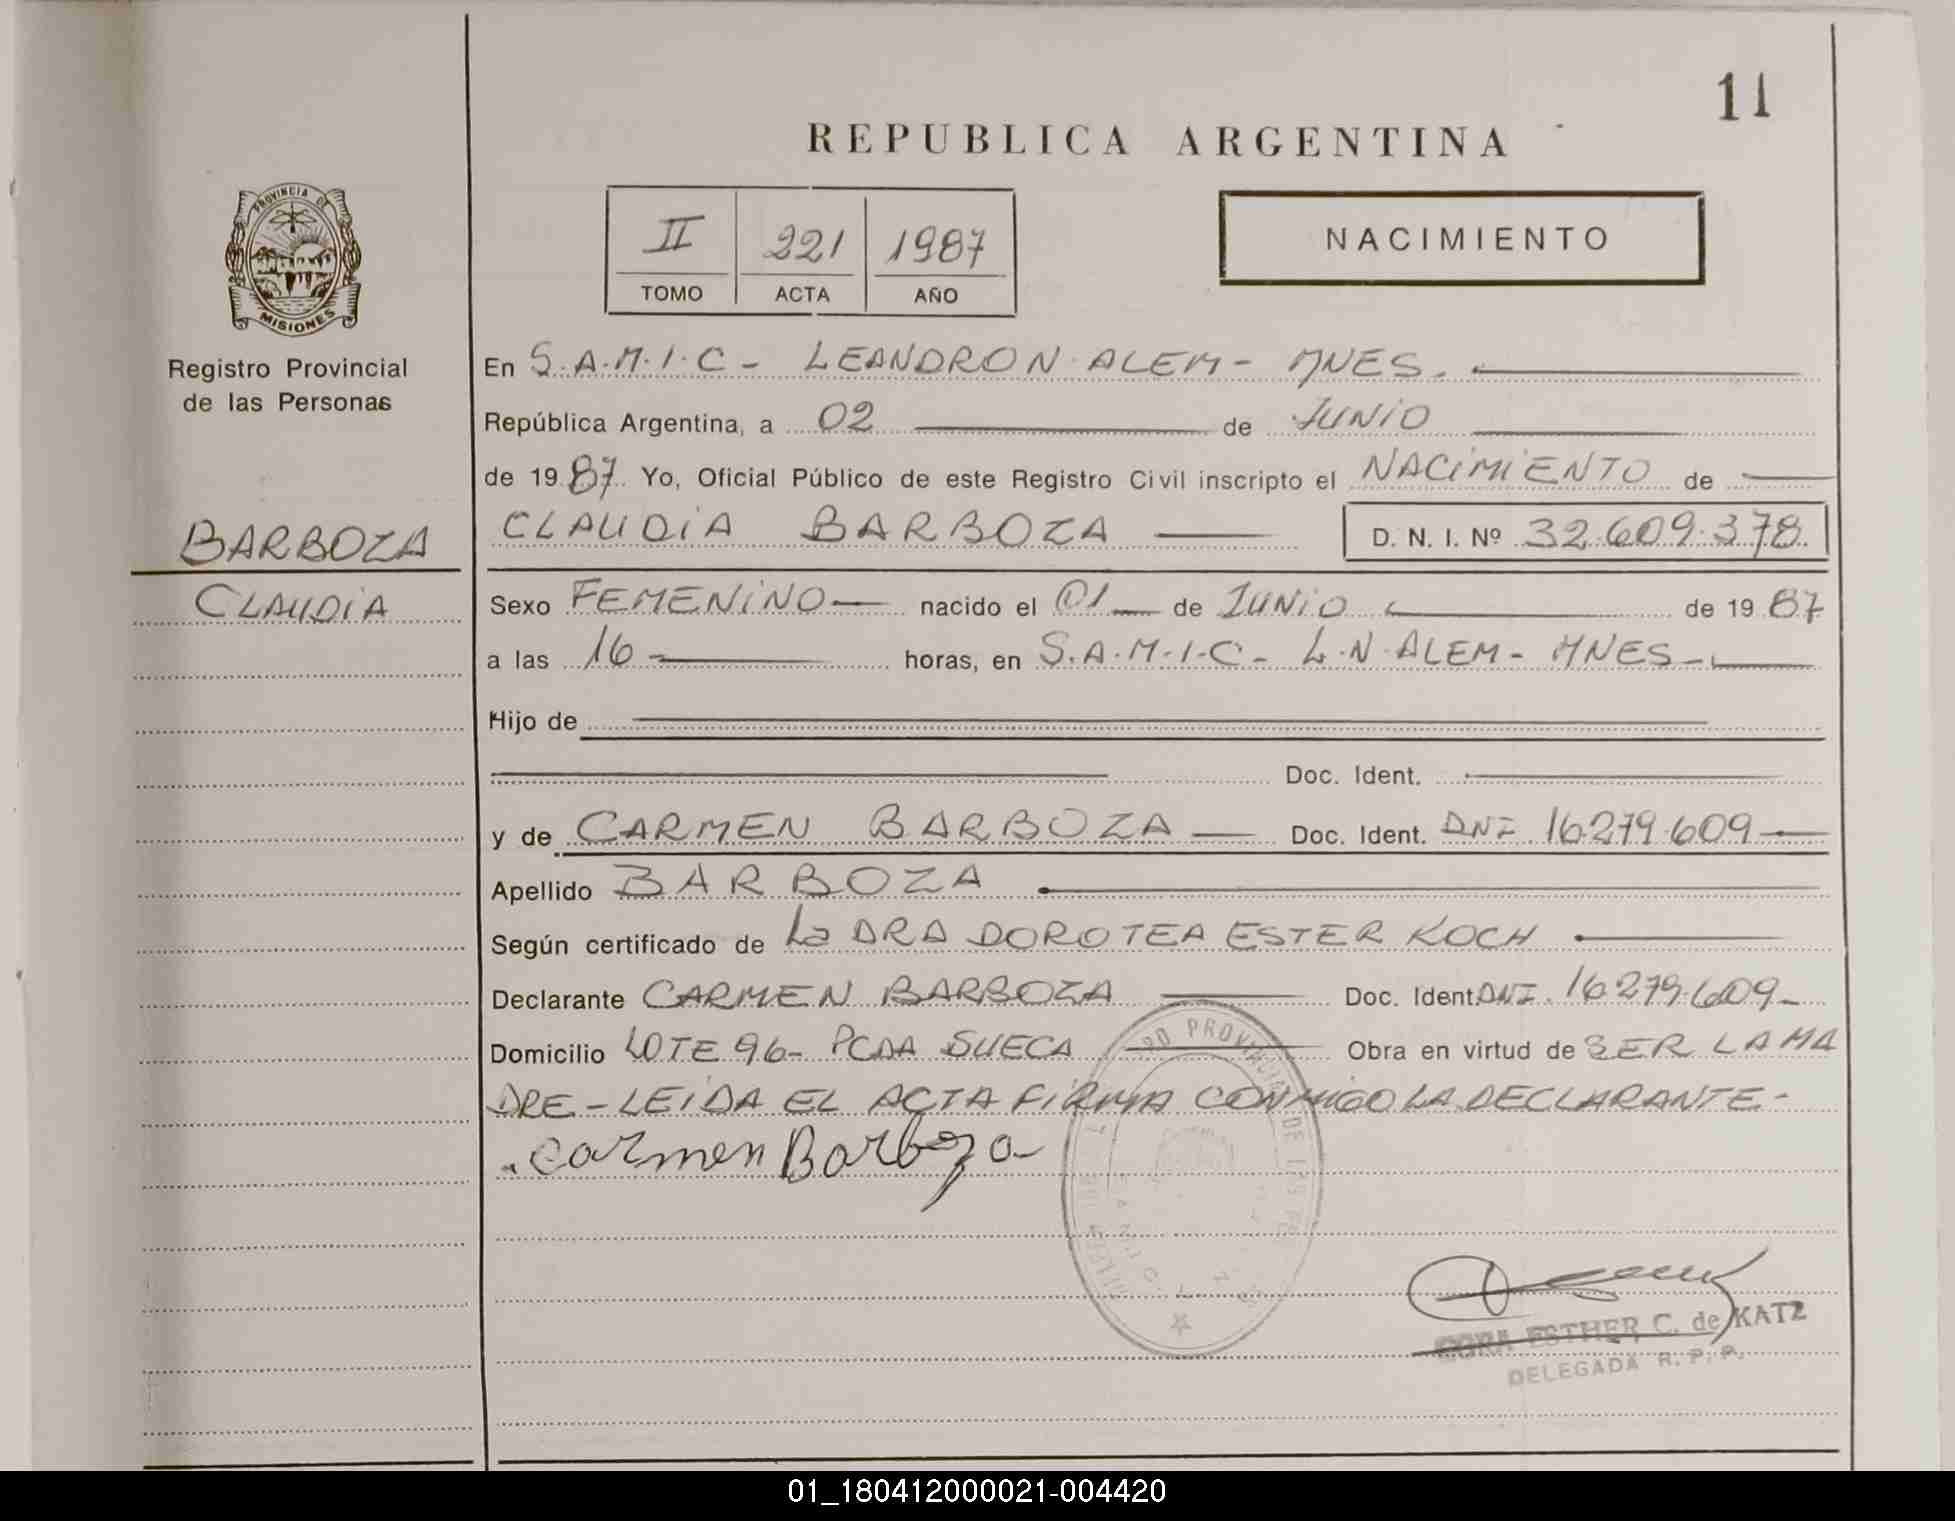 11
REPUBLICA ARGENTINA
PROVINCIA DE
MISIONES
Registro Provincial
de las Personas
II 221 1987
TOMO ACTA AÑO
NACIMIENTO
En S.A.M.I.C - LEANDRO N. ALEM - MNES.
República Argentina, a 02 de JUNIO
de 1987 Yo, Oficial Público de este Registro Civil inscripto el NACIMIENTO de
BARBOZA
CLAUDIA
CLAUDIA BARBOZA D. N. I. Nº 32.609.378
Sexo FEMENINO nacido el 01 de JUNIO de 1987
a las 16 horas, en S.A.M.I.C - L.N. ALEM - MNES
Hijo de
Doc. Ident.
y de CARMEN BARBOZA Doc. Ident. DNI 16.279.609
Apellido BARBOZA
Según certificado de La DRA DOROTEA ESTER KOCH
Declarante CARMEN BARBOZA Doc. Ident. DNI. 16.279.609
Domicilio LOTE 96 - PCDA SUECA Obra en virtud de SER LA MA
DRE - LEIDA EL ACTA FIRMA CONMIGO LA DECLARANTE -
Carmen Barboza
ESTHER C. de KATZ
DELEGADA R. P. P.
01_180412000021-004420